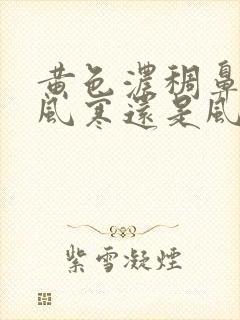 黄色濃稠鼻
風寒還是風
紫雪凝煙